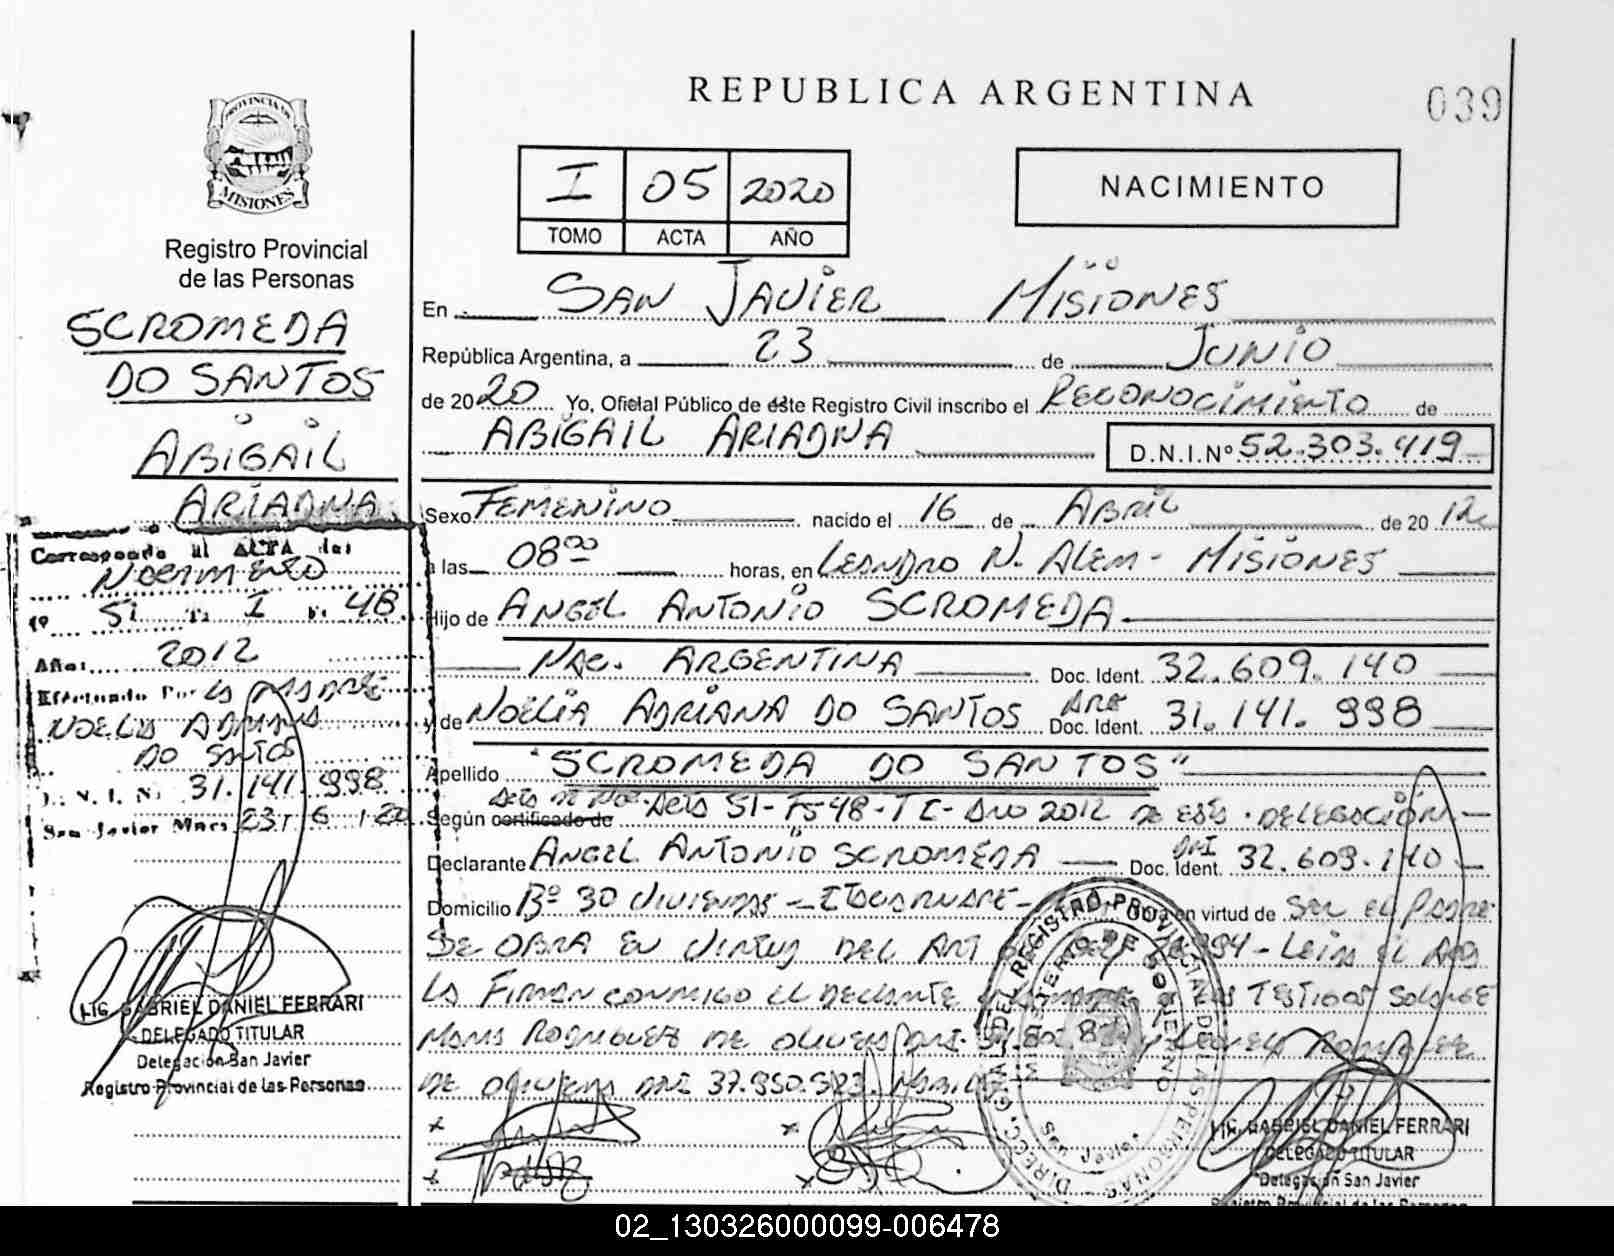 REPUBLICA ARGENTINA
039
PROVINCIA DE
MISIONES
Registro Provincial
de las Personas
SCROMEDA
DO SANTOS
ABIGAIL
ARIADNA
Corresponde al ACTA de:
NACIMIENTO
Nº 51 Tº I Fº 48
Año: 2012
Efectuado Por LA MADRE
NOELIA ADRIANA
DO SANTOS
D. N. I. Nº 31.141.998
San Javier Mnes 23 / 6 / 20
LIC. GABRIEL DANIEL FERRARI
DELEGADO TITULAR
Delegación San Javier
Registro Provincial de las Personas
I 05 2020
TOMO ACTA AÑO
NACIMIENTO
En SAN JAVIER MISIONES
República Argentina, a 23 de JUNIO
de 2020 Yo, Oficial Público de este Registro Civil inscribo el RECONOCIMIENTO de
ABIGAIL ARIADNA D.N.I.Nº 52.303.419
Sexo FEMENINO nacido el 16 de ABRIL de 2012
a las 08 00 horas, en LEANDRO N. ALEM - MISIONES
Hijo de ANGEL ANTONIO SCROMEDA
NAC. ARGENTINA Doc. Ident. 32.609.140
y de NOELIA ADRIANA DO SANTOS ARG Doc. Ident. 31.141.998
Apellido "SCROMEDA DO SANTOS"
Según certificado de ACTA DE NAC. ACTA 51 - Fº 48 - Tº I - AÑO 2012 DE ESTA DELEGACIÓN
Declarante ANGEL ANTONIO SCROMEDA DNI Doc. Ident. 32.609.140
Domicilio Bº 30 VIVIENDAS - ITACARUARE - Obra en virtud de SER EL PADRE
SE OBRA EN VIRTUD DEL ART - LEIDA EL ACTA
LA FIRMAN CONMIGO EL DECLARANTE TESTIGOS SOLANGE
RODRIGUEZ DE OLIVERA DNI.
DE OLIVERA DNI 37.950.323.
DIRECC. GRAL DEL REGISTRO PROVINCIAL DE LAS PERSONAS
MINISTERIO DE GOBIERNO
San Javier
LIC. GABRIEL DANIEL FERRARI
DELEGADO TITULAR
Delegación San Javier
Registro Provincial de las Personas
02_130326000099-006478